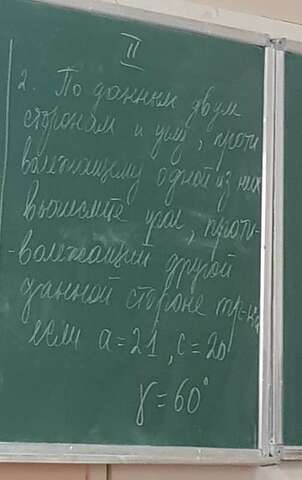 II
2. По данным двум
сторонам и углу, проти
волежащему одной из них
вычислите угол, проти-
-волежащий другой
данной стороне тр-ка
если a=21, c=20
γ=60°